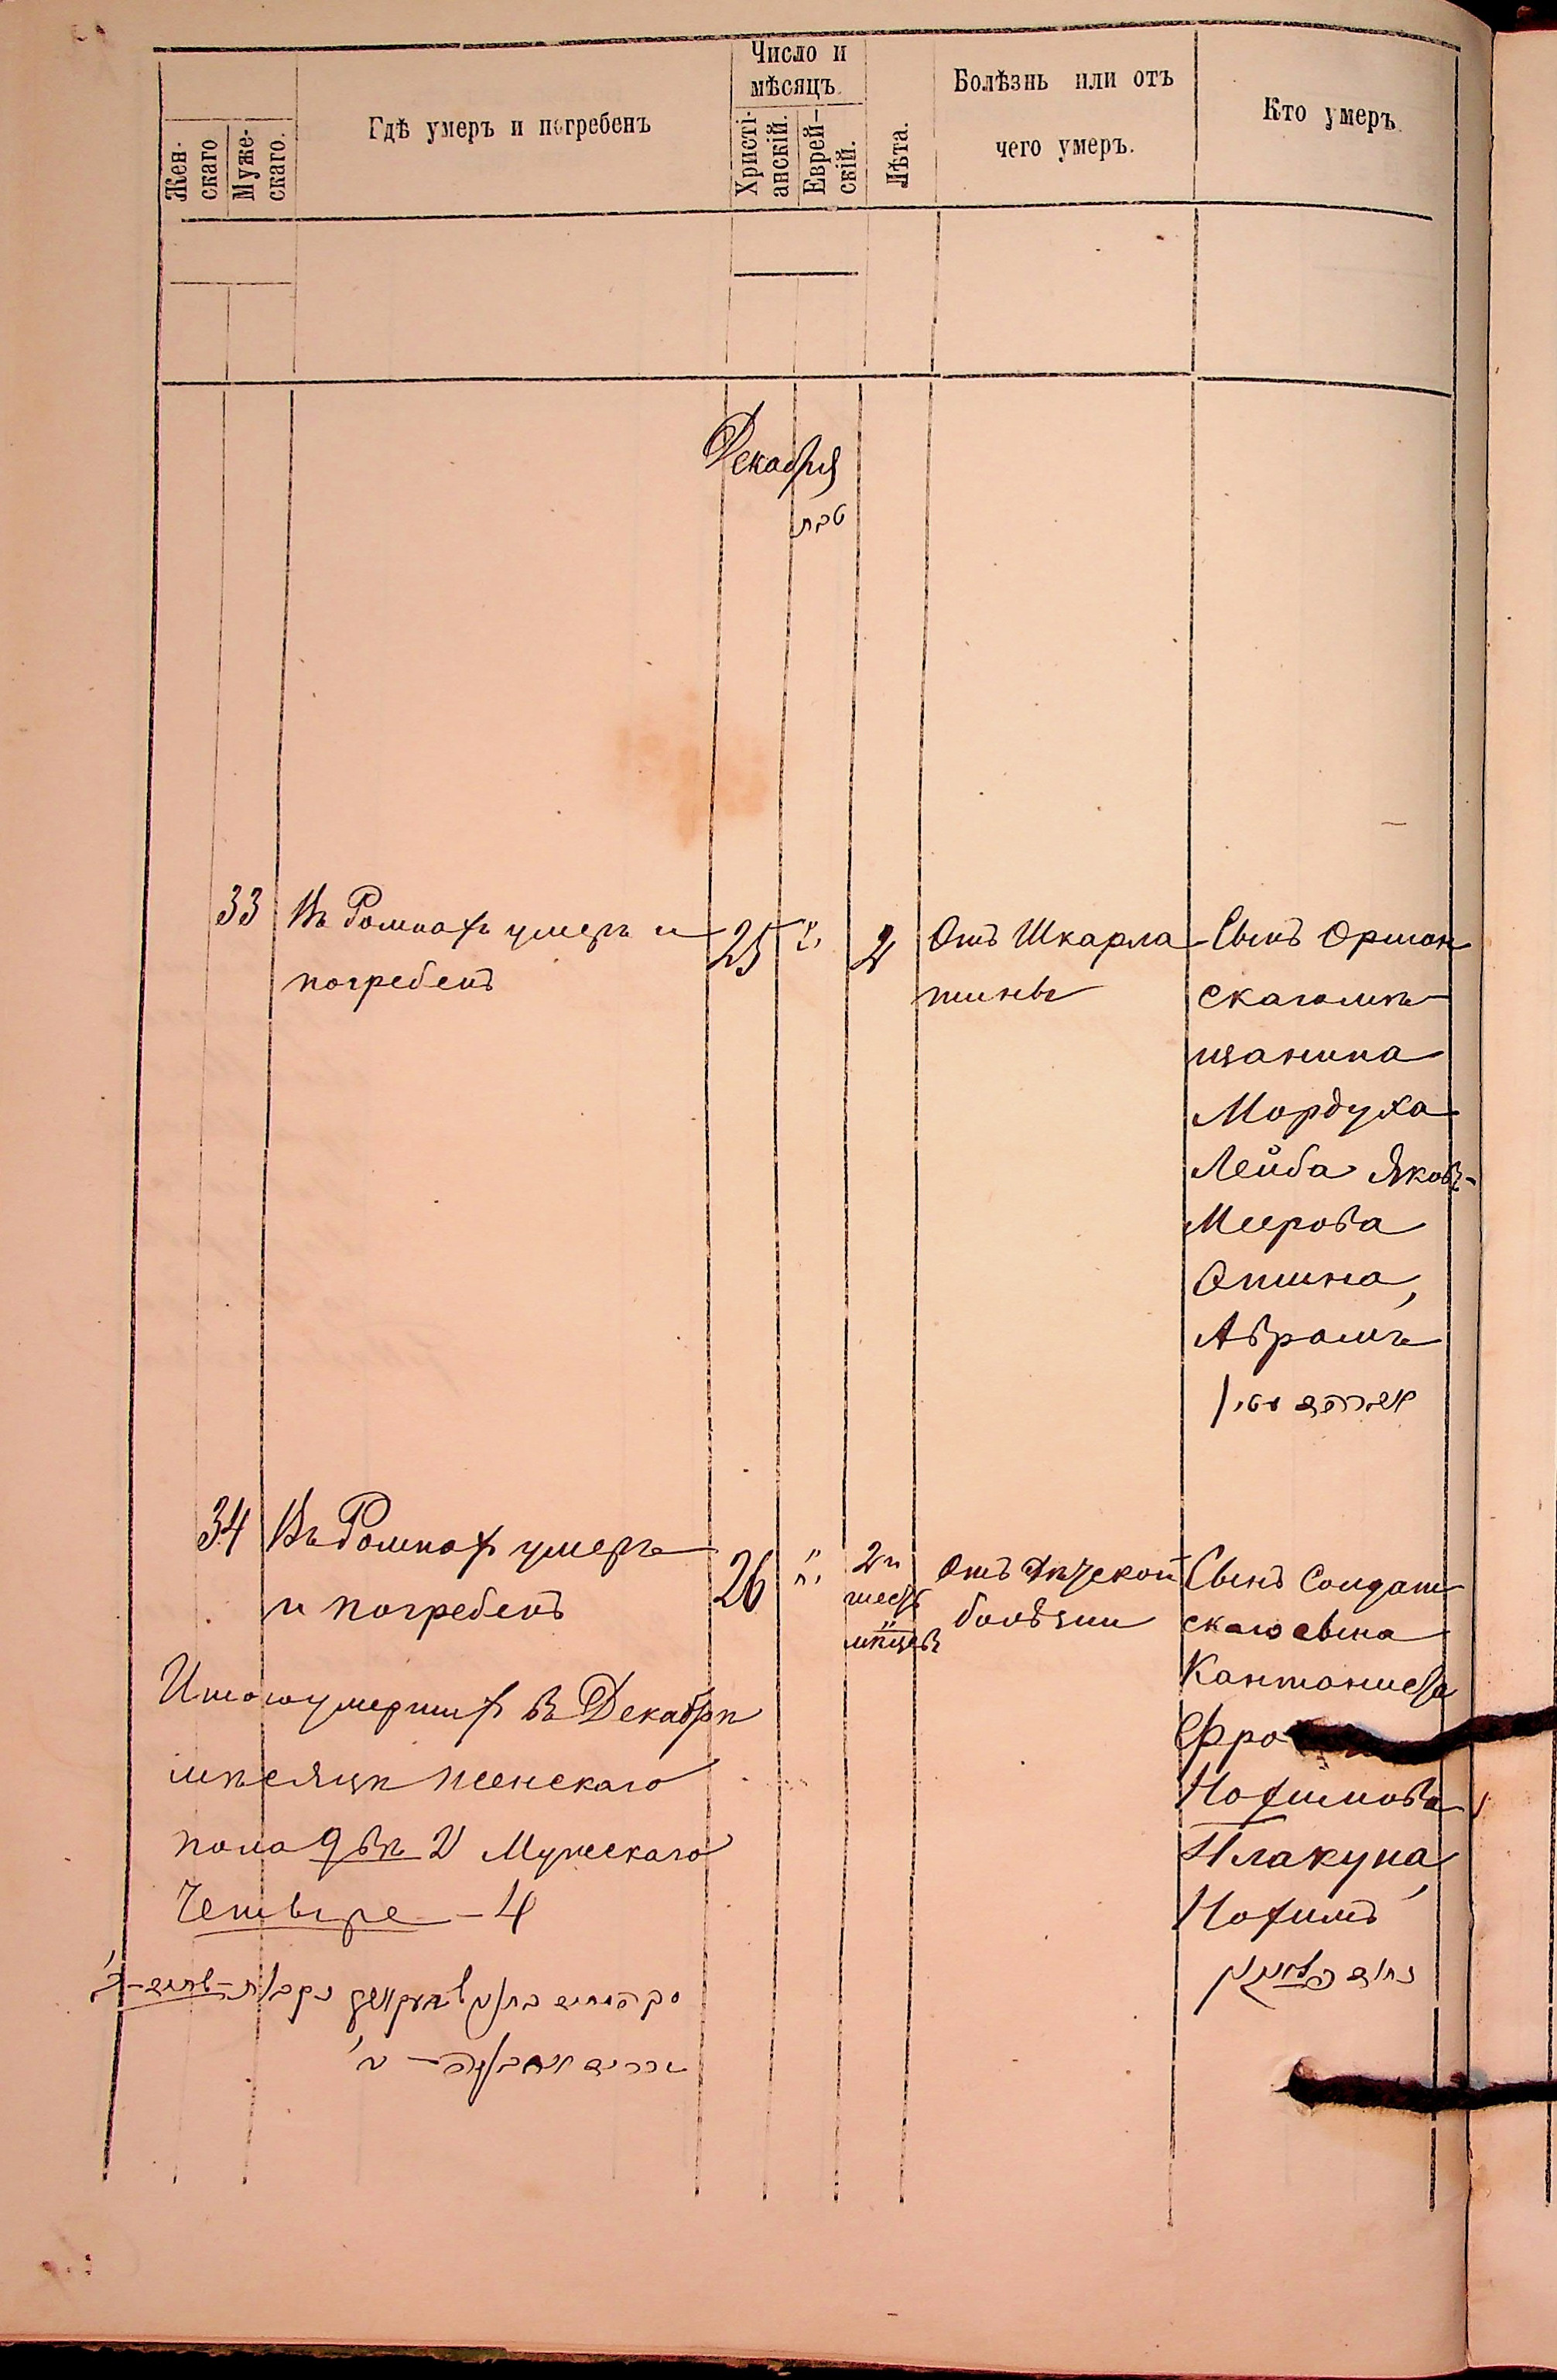 Жен-
скаго
Муже-
скаго.
Гдѣ умеръ и погребенъ
Число и
мѣсяцъ.
Христі-
анскій.
Еврей-
скій.
Лѣта.
Болѣзнь или отъ
чего умеръ.
Кто умеръ
Декабря
טבת
33
Въ Ромнахъ умеръ и
погребенъ
25
2
Отъ Шкарла-
тины
Сынъ Оршан
скаго мѣ-
щанина
Мордуха
Лейба Яковъ-
Меерова
Опина,
Абрамъ
34
Въ Ромнахъ умеръ
и погребенъ
26
2 и
шесть
мѣцевъ
Отъ дѣтской
болѣзни
Сынъ Солдат
скаго сына
Кантониста
Фро
Нохимова
Плакуна,
Нохимъ
Итого умершихъ въ Декабрѣ
мѣсяцѣ женскаго
пола двѣ 2 Мужескаго
Четыре – 4